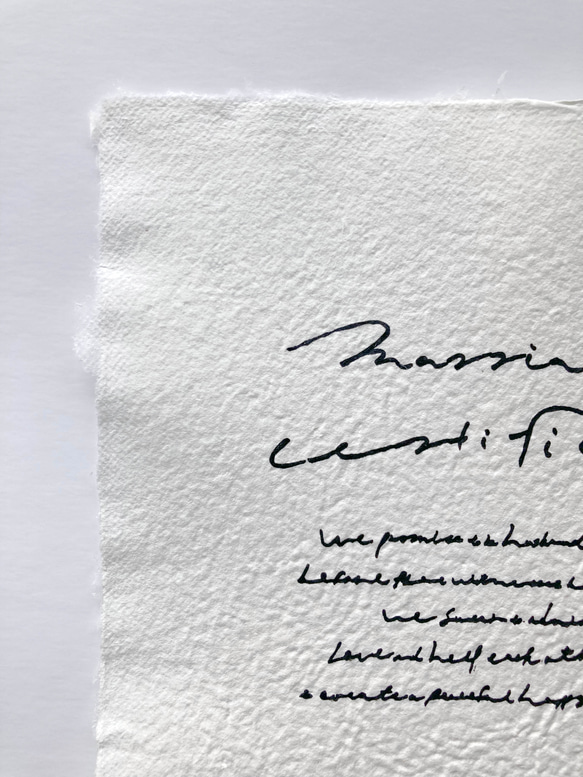 Marria
certifi
We promise to be husband
before these witnesses
We swear to always
Love and help each oth
create a peaceful happ